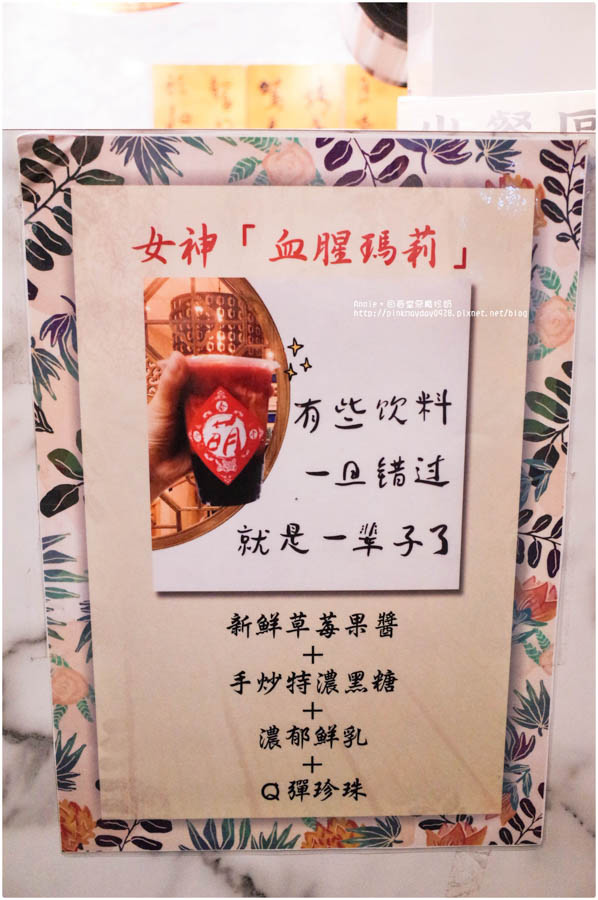 女神「血腥瑪莉」
http://pinkmayday0928.pixnet.net/blog
萌
有些饮料
一旦错过
就是一辈子了
新鮮草莓果醬
+
手炒特濃黑糖
+
濃郁鮮乳
+
Q彈珍珠